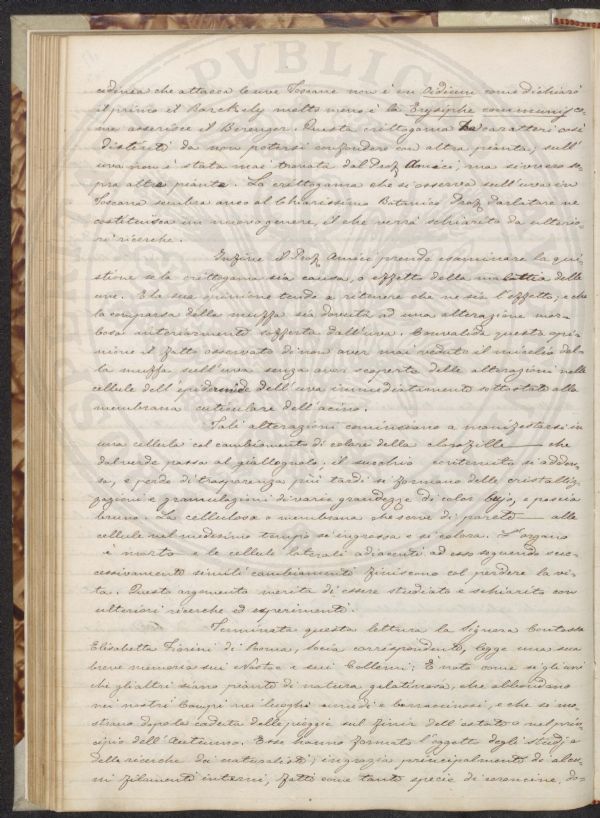 cedinea che attacca le uve Toscane non è un Oidium come dichiarò
il primo il Barckely molto meno è la Erysiphe communis co-
me asserisce il Berenger. Questa crittogama ha caratteri così
distinti da non potersi confondere con altra pianta, sull'
uva non è stata mai trovata dal Prof. Amici; ma si vive so-
pra altre piante. La crittogama che si osserva sull'uva in
Toscana sembra anco al Chiarissimo Botanico Prof. Parlatore ne
costituisca un nuovo genere, il che verrà schiarito da ulterio-
ri ricerche.
Infine il Prof. Amici prende esaminare la qui-
stione se la crittogama sia causa, o effetto della malattia delle
uve. E la sua opinione tende a ritenere che ne sia l'effetto, e che
la comparsa della muffa sia dovuta ad una alterazione mor-
bosa anteriormente sofferta dall'uva. Convalida questa opi-
nione il fatto osservato di non aver mai veduto il micelio del-
la muffa sull'uva senza aver scoperto delle alterazioni nelle
cellule dell'epidermide dell'uva immediatamente sottostate alla
membrana cuticulare dell'acino.
Tali alterazioni cominciano a manifestarsi in
una cellula col cambiamento di colore della clorofilla — che
dal verde passa al giallognolo, il succhio contenuto si adden-
sa, e perde di trasparenza più tardi si formano delle cristalliz-
zazioni e granulazioni di varia grandezza di color bujo, e poscia
bruno. La cellulosa o membrana che serve di parete — alle
cellule nel medesimo tempo si ingrossa e si colora. L'organo
è morto e le cellule laterali adiacenti ad esso seguendo suc-
cessivamente simili cambiamenti finiscono col perdere la vi-
ta. Questo argomento merita di essere studiato e schiarito con
ulteriori ricerche ed esperimenti.
Terminata questa lettura la Signora Contessa
Elisabetta Fiorini di Roma, Socia corrispondente, legge una sua
breve memoria sui Nostoc e sui Collemi: È noto come sì gli uni
che gli altri siano piante di natura gelatinosa, che abbondano
nei nostri Campi nei luoghi umidi e borraccinosi, e che si mo-
strano dopo la caduta delle pioggie sul finir dell'estate o nel prin-
cipio dell'Autunno. Esse hanno formato l'oggetto degli studj e
delle ricerche dei naturalisti, in grazia principalmente di alcu-
ni filamenti interni, fatti come tante specie di coroncine, do-